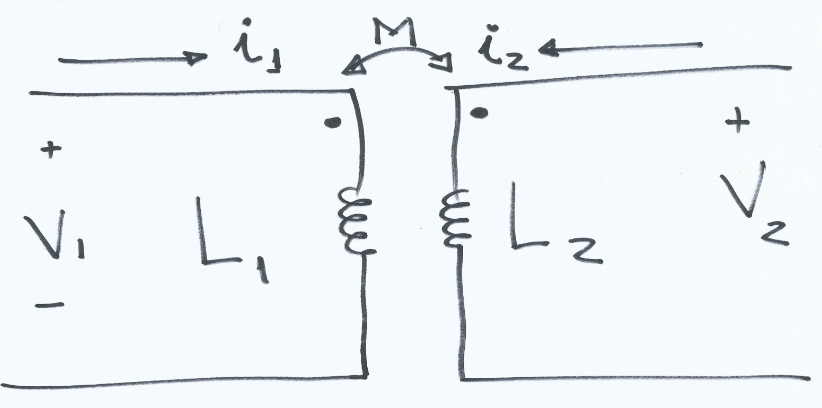 i₁ M i₂
+ +
V₁ L₁ L₂ V₂
−